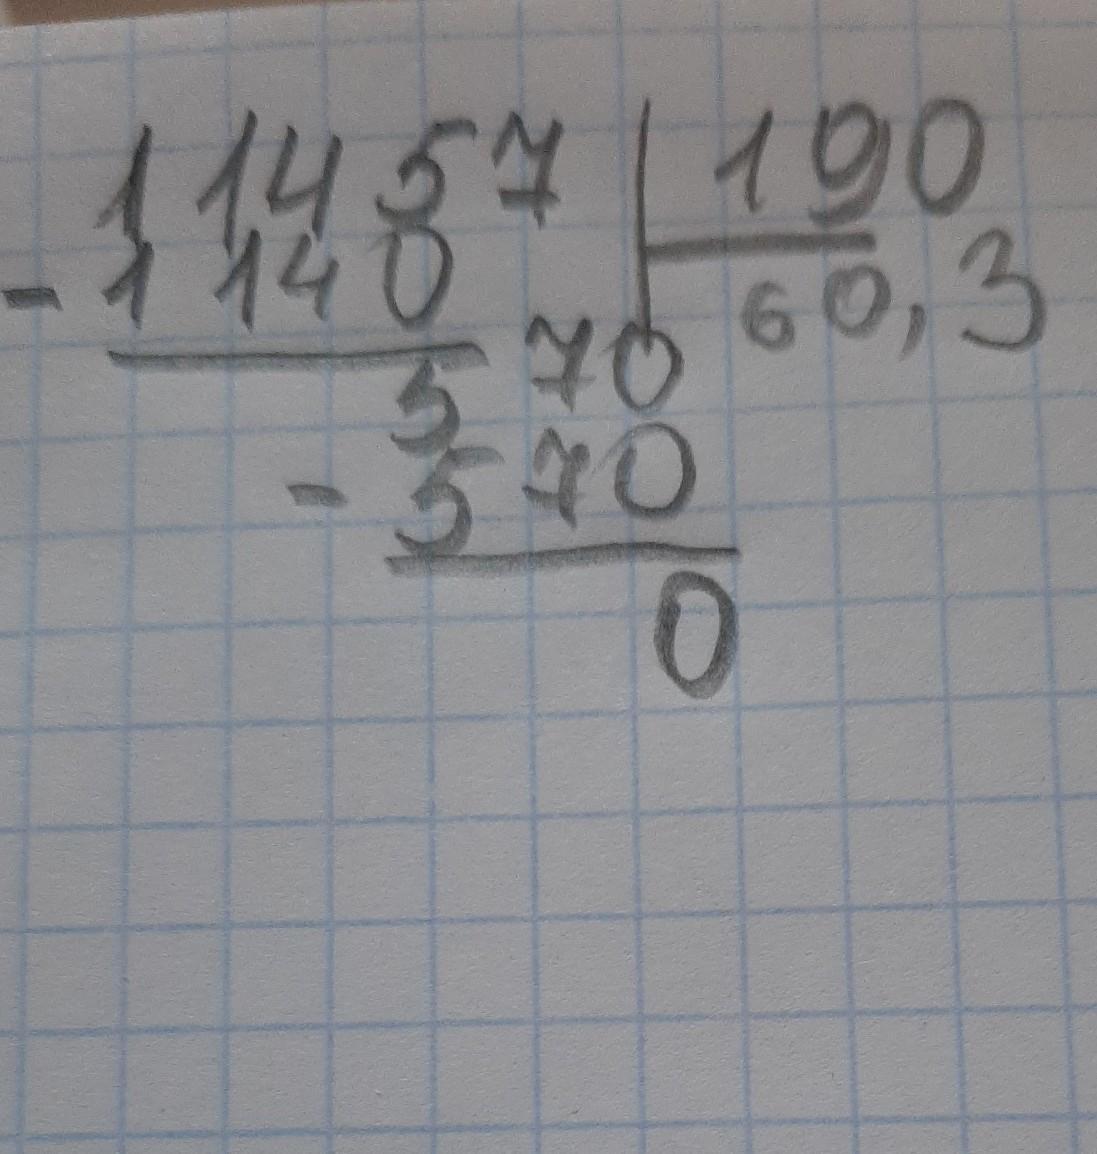 11457 | 190
- 1140 60,3
570
- 570
0